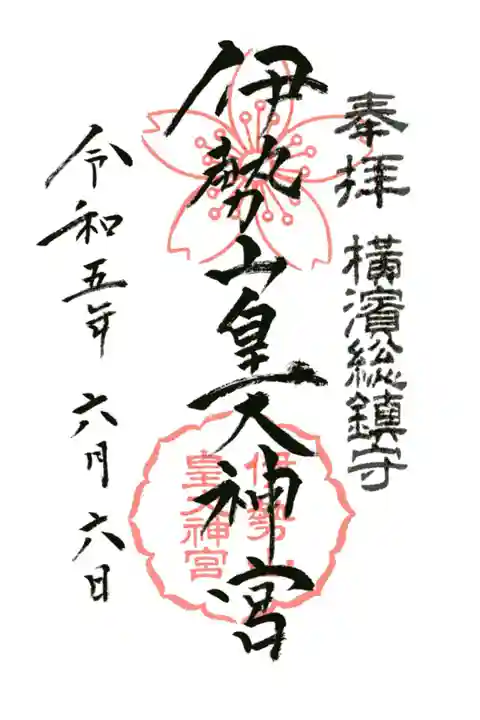 奉拝 横濱総鎮守
伊勢山皇大神宮
伊勢山
皇大神宮
令和五年 六月六日